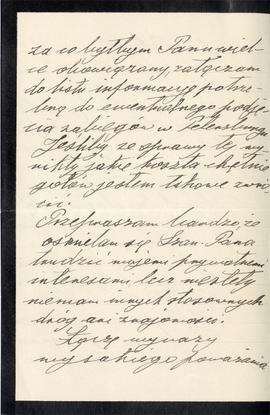 za co byłbym Panu wiel-
ce obowiązany, załączam
do listu informacje potrze-
bną do ewentualnego podję-
cia zabiegów w Petersburgu.
Jeśliby ze sprawy tej wy-
nikły jakie koszta chętnie
gotów jestem takowe zwró-
cić.
Przepraszam bardzo, że
ośmielam się Szan. Pana
trudzić mojemi prywatnemi
interesami, lecz niestety
niemam innych stosownych
dróg ani znajomości.
Łączę wyrazy
wysokiego poważania